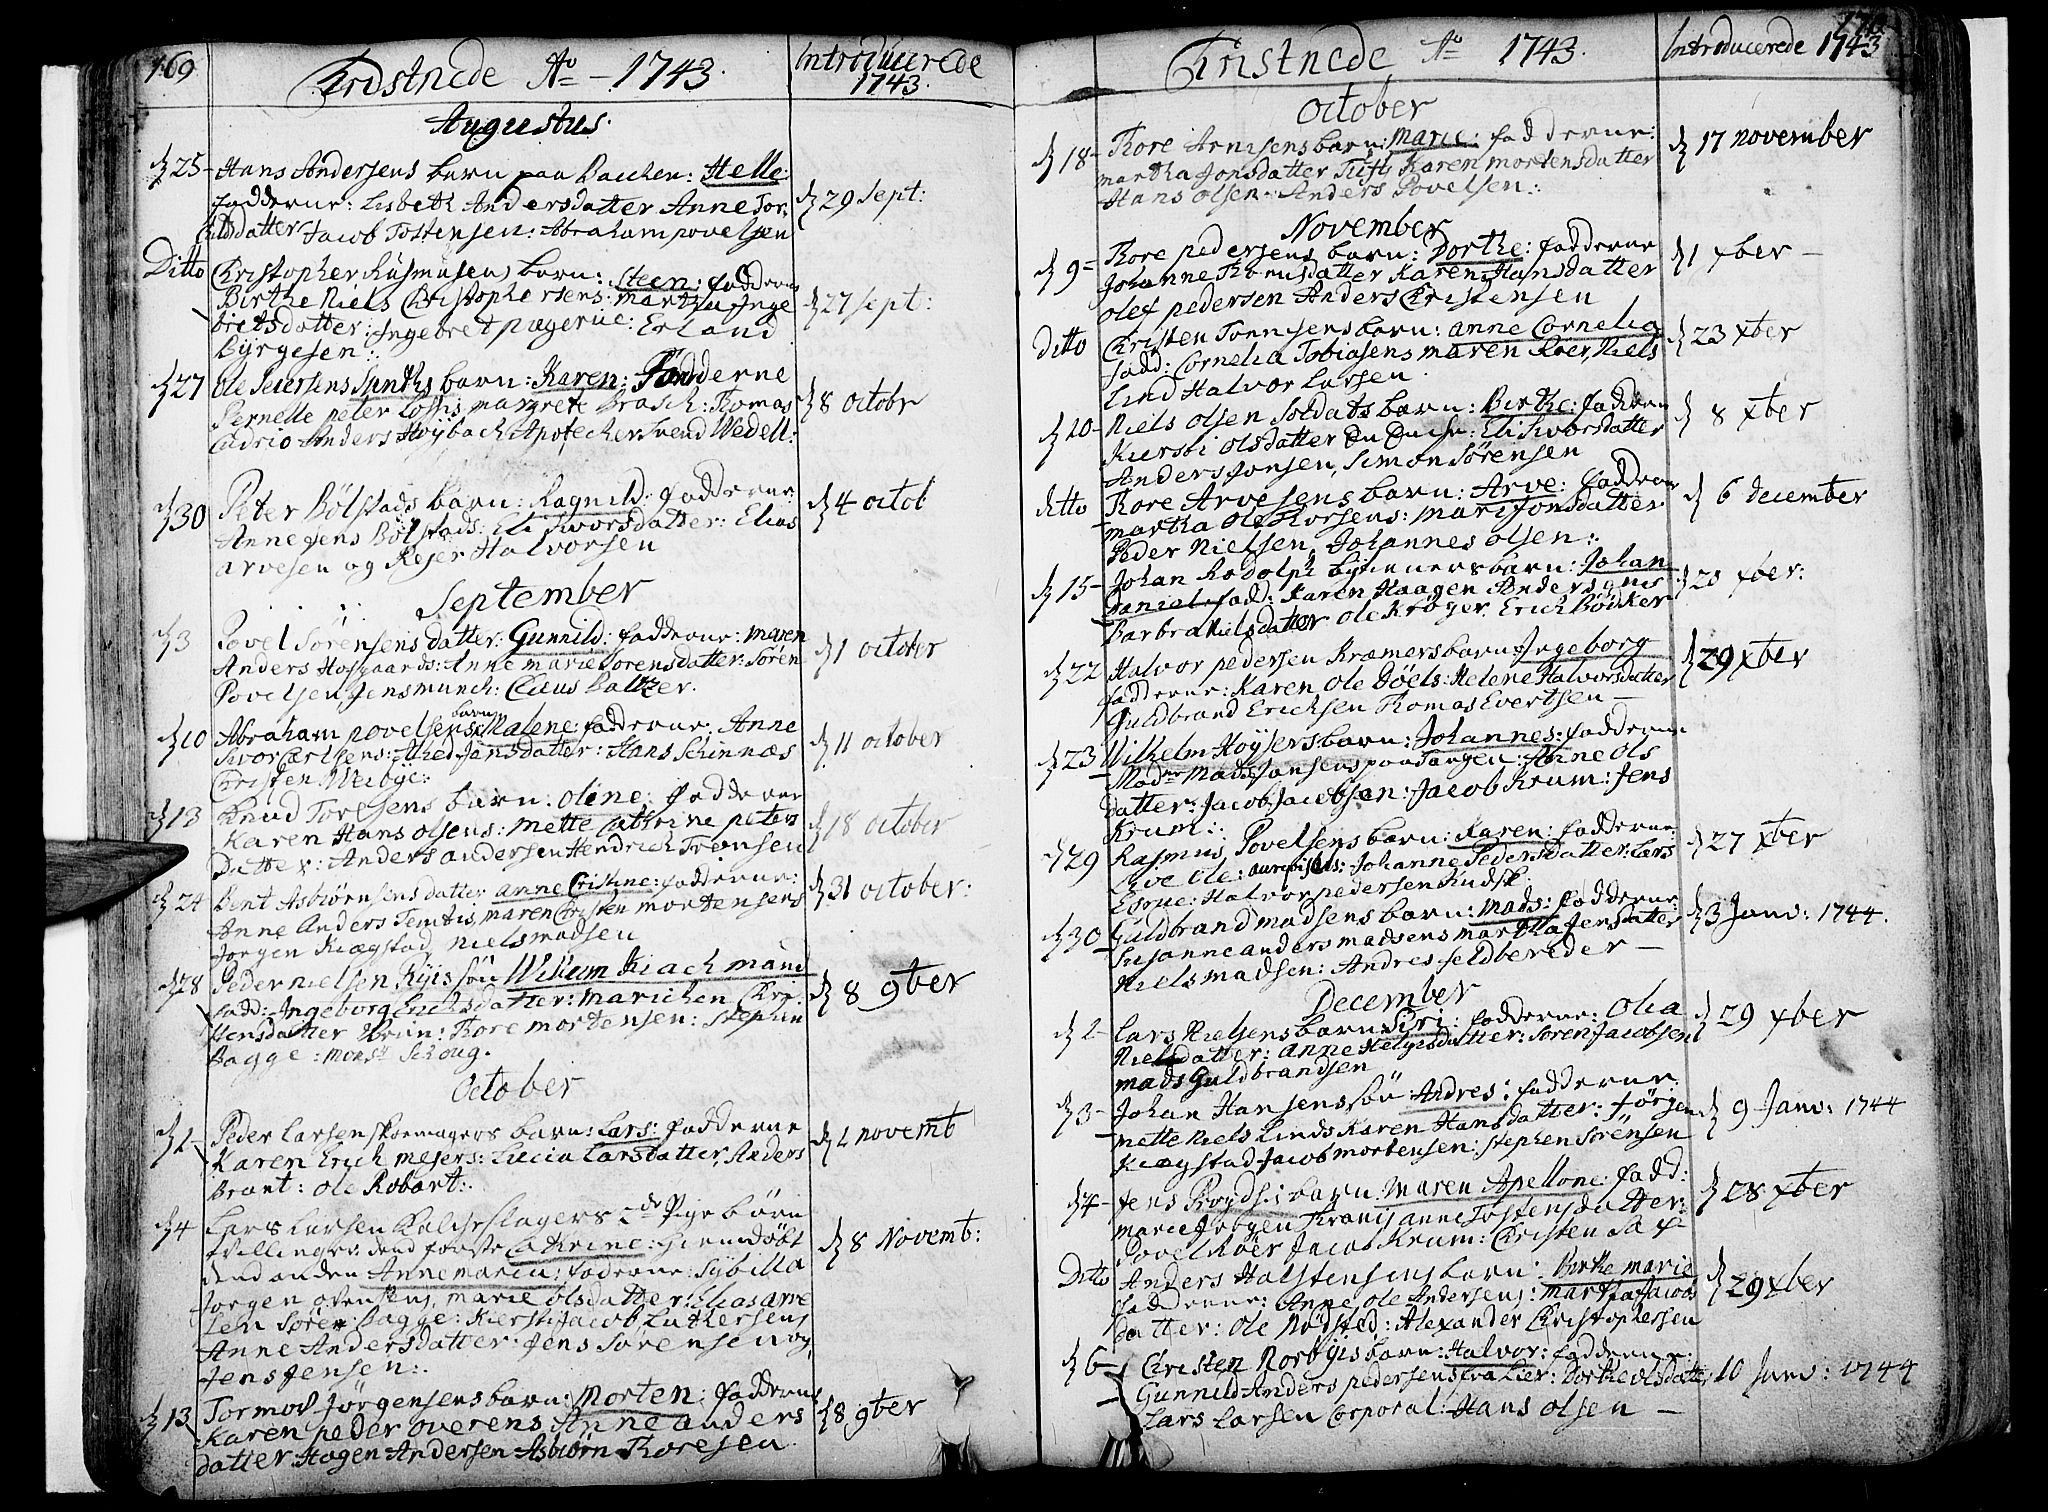 169
Christnede Ao 1743.
Introducerede
1743.
Augustus.
25 Hans Andersens barn paa Bacchen: Helle:
fadderne: Lisbeth Andersdatter Anne Tor
datter Jacob Tostensen: Abraham povelsen
29 Sept:
Ditto Christopher Rasmusens barn: Steen: faddern
Birthe Niels Christophersens: martha Inge
bretsdatter: Ingebret Erland
Byrgesen:
27 Sept:
27 Ole barn: Karen: Fadderne
Pernelle peter margrete Brasch: Thomas
Anders Høybach Apotecher Svend Wedell:
8 octobr
30 Peter Bølstads barn: Ragnild: fadderne:
Anne Jens Bølstads: Eli Siversdatter: Elias
arvesen og Rejer Halvorsen
4 octob
September
3 Povel Sörensens datter: Gunnild: fadderne: maren
Anders Hofgaards: Anne marie Sorensdatter: Sören
Povelsen Jens munch: Claus Baltzer.
1 october
10 Abraham povelsens barn Malene: fadderne: Anne
Siver Carlsens: Jonsdatter: Hans Schinnæs
Cristen Weibye:
11 october
13 Knud Toresens barn: oline: faddeerne
Karen Hans olsens: mette Cathrine peters
Datter: Anders andersen Hendrich Tronsen
18 october
24 Bent Asbiørnsens datter anne Cristine: fadderne:
Anne Anders maren Christen mortensens
Jorgen Kiægstad Niels madsen
31 october:
28 Peder nielsen søn
fadd: Ingeborg Erichsdatter: marichen Chri
stensdatter Brun: Thore mortensen: Stephen
Bagge: mons Schoug.
8 9ber
October
2 Peder Larsen skoemagers barn: Lars: fadderne
Karen Erich mejers: Lucia Larsdatter, Anders
Brant: ole Robart:
2 novemb
4 Lars Larsen 2de Pige børn
tvillinger: dend første Cathrine: hiemdøbt
dend anden Anne maria: faderne: Sybilla
Jorgen ovensens, marie olsdatter: Elias arve
sen Sören Bagge: Kiersti Jacob Luthersens
Anne Andersdatter: Jens Sörensen og
Jens Jensen:
8 Novemb:
13 Tormod Jørgensens barn: Morten: fadderne
Karen peder overens Anne anders
datter: Hagen Andersen Asbiørn Thoresen.
8 9ber
Christnede Ao 1743.
Introducerede 1743
October
18 Thore Arnisens barn: Marie: fadderne:
martha Jonsdatter Tufts Karen mortensdatter
Hans olsen Anders Povelsen:
17 november
November
9 Thore pedersens barn: Dorthe: fadderne
Johanne Karen Hansdatter
olef pedersen Anders Christensen
1 xber
Ditto Christen Tonnesens barn: anne Cornelia
fadd: Cornelia Tobiasens maren Roer, Niels
Lind Halvor Larsen
23 xber
10 Niels olsen Soldats barn: Birthe: faddern
Kiersti olsdatter Eli Siversdatter
Anders Jonsen, Simon Sörensen
8 xber
ditto Thore Arvesens barn: Arve: faddern
martha ole Thorsens: mari Jonsdatter
Peder Nielsen Johannes olsen:
6 december
15 Johan Rodolph barn: Johan
Daniel: fadd: Karen Haagen Andersens
Barbra Nielsdatter ole Krøger Erich Bödker
20 xber:
22 Halvor pedersen Kramers barn: Ingeborg
fadderne: Karen Ole Döels: Helene Halvorsdatter
Guldbrand Erichsen Thomas Evertsen
29 xber
23 Wilhelm Höysers barn: Johannes: fadderne
Madme Madz Jonsens paa Tangen: Anne ols
datter: Jacob Jacobsen: Jacob Krum: Jens
Krum:
29 Rasmus Povelsens barn: Karen: fadderne:
Live ole: Johanne Pedersdatter: Lars
Halvor pedersen Kudsk
27 xber
30 Guldbrand madsens barn: Mads: fadderne:
Susanne anders madsens martha Jensdatter
Niels madsen: Andres feldbereder
3 Janv: 1744.
December
2 Lars Nielsens barn: Siri: fadderne: Olia
Nielsdatter: anne Helgesdatter: Soren Jacobsen
mads Guldbrandsen
29 xber
3 Johan Hansens søn Andres: fadderne:
mette Niels Linds Karen Hansdatter: Jørgen
Kiægstad Jacob mortensen: Stephen Sörensen
9 Janv: 1744
4 Jens barn: Maren Apellone: fadd:
marie Jørgen anne Tostensdatter:
Povel Roer Jacob Krum: Christen
28 xber
Ditto Anders Halstensens barn: Berthe marie
fadderne: Anne ole Andersens: martha Jacobs
datter: ole Alexander Christophersen
29 xber
6 Christen Norbyis barn: Halvor: fadderne:
Gunnild Anders pedersens fra Lier: Dorthe olsdatter
Lars Larsen Corporal: Hans olsen
10 Janv: 1744